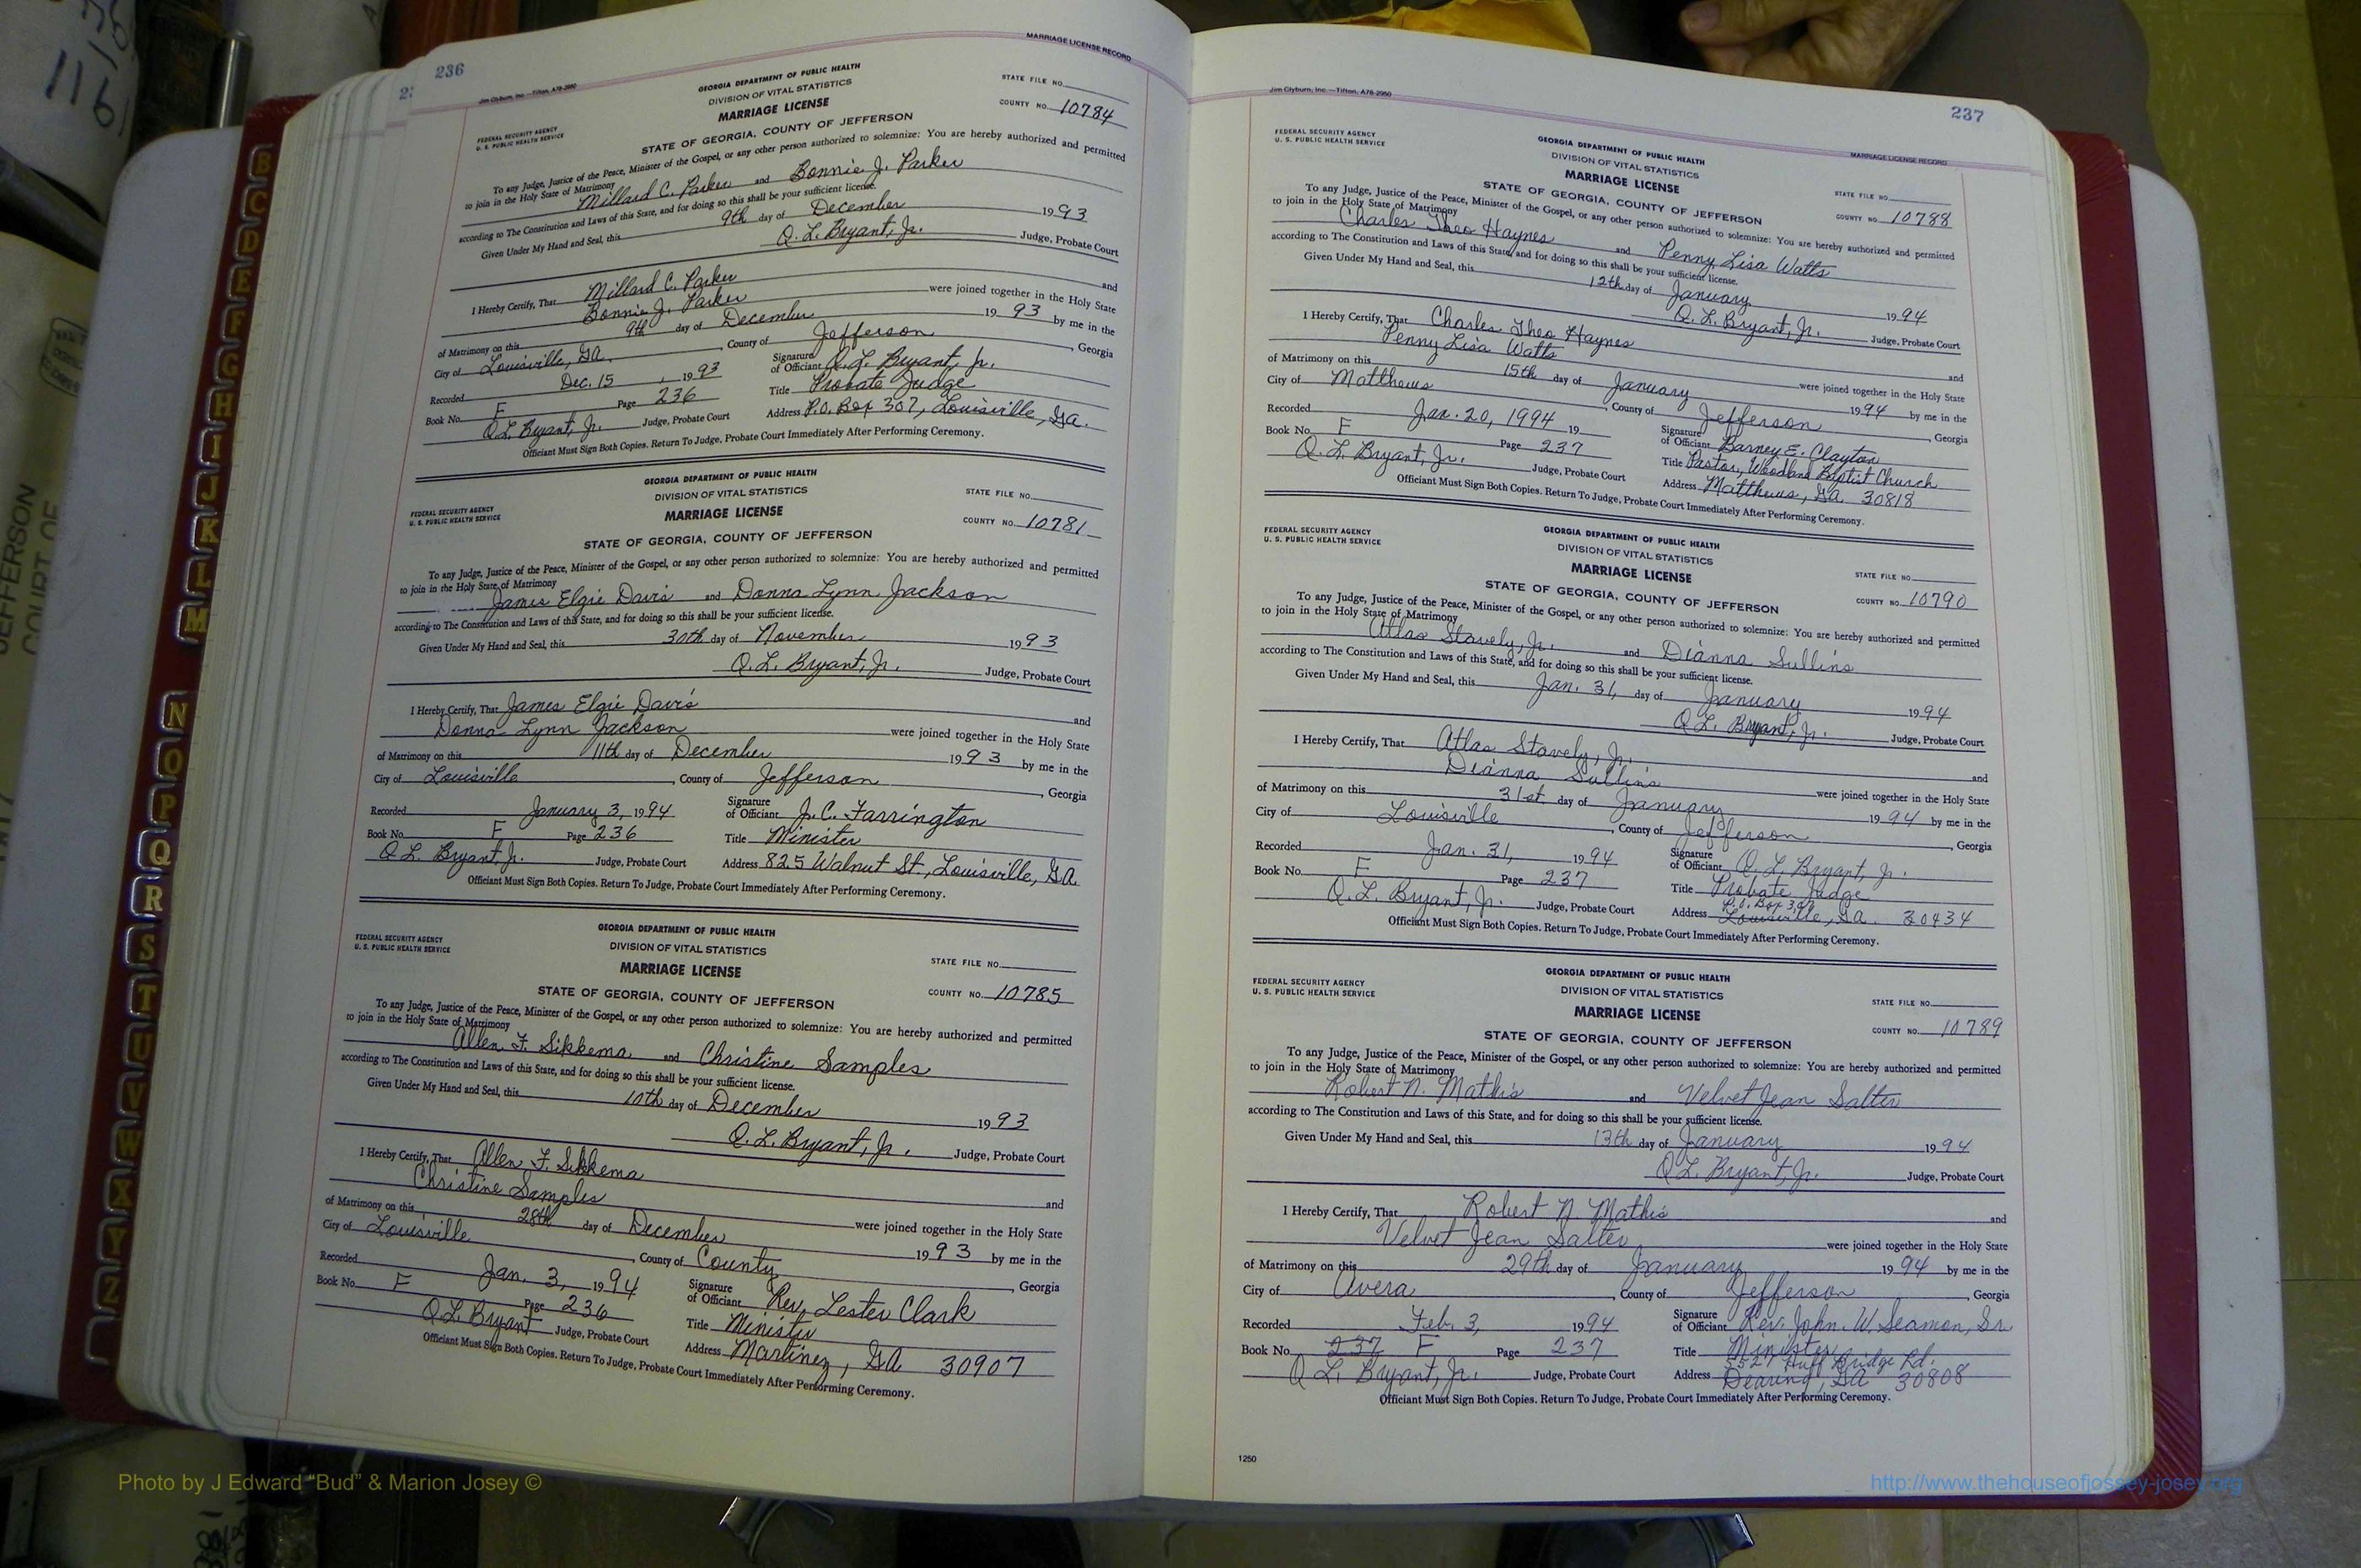 236
MARRIAGE LICENSE RECORD
Jim Clyburn, Inc.—Tifton, A78-2950
GEORGIA DEPARTMENT OF PUBLIC HEALTH
DIVISION OF VITAL STATISTICS
MARRIAGE LICENSE
STATE FILE NO.
COUNTY NO. 10784
FEDERAL SECURITY AGENCY
U. S. PUBLIC HEALTH SERVICE
STATE OF GEORGIA, COUNTY OF JEFFERSON
To any Judge, Justice of the Peace, Minister of the Gospel, or any other person authorized to solemnize: You are hereby authorized and permitted
to join in the Holy State of Matrimony
Millard C. Parker and Bonnie J. Parker
according to The Constitution and Laws of this State, and for doing so this shall be your sufficient license.
Given Under My Hand and Seal, this 9th day of December 1993
Q. L. Bryant, Jr. Judge, Probate Court
I Hereby Certify, That Millard C. Parker and
Bonnie J. Parker were joined together in the Holy State
of Matrimony on this 9th day of December 1993 by me in the
City of Louisville, GA. , County of Jefferson , Georgia
Recorded Dec. 15 , 1993 Signature of Officiant Q. L. Bryant, Jr.
Book No. F Page 236 Title Probate Judge
Q L. Bryant, Jr. Judge, Probate Court Address P.O. Box 307, Louisville, Ga.
Officiant Must Sign Both Copies. Return To Judge, Probate Court Immediately After Performing Ceremony.
GEORGIA DEPARTMENT OF PUBLIC HEALTH
DIVISION OF VITAL STATISTICS
MARRIAGE LICENSE
STATE FILE NO.
COUNTY NO. 10781
FEDERAL SECURITY AGENCY
U. S. PUBLIC HEALTH SERVICE
STATE OF GEORGIA, COUNTY OF JEFFERSON
To any Judge, Justice of the Peace, Minister of the Gospel, or any other person authorized to solemnize: You are hereby authorized and permitted
to join in the Holy State of Matrimony
James Elgie Davis and Donna Lynn Jackson
according to The Constitution and Laws of this State, and for doing so this shall be your sufficient license.
Given Under My Hand and Seal, this 30th day of November 1993
Q. L. Bryant, Jr. Judge, Probate Court
I Hereby Certify, That James Elgie Davis and
Donna Lynn Jackson were joined together in the Holy State
of Matrimony on this 11th day of December 1993 by me in the
City of Louisville , County of Jefferson , Georgia
Recorded January 3, 1994 Signature of Officiant J. C. Farrington
Book No. F Page 236 Title Minister
Q L. Bryant, Jr. Judge, Probate Court Address 825 Walnut St., Louisville, GA
Officiant Must Sign Both Copies. Return To Judge, Probate Court Immediately After Performing Ceremony.
GEORGIA DEPARTMENT OF PUBLIC HEALTH
DIVISION OF VITAL STATISTICS
MARRIAGE LICENSE
STATE FILE NO.
COUNTY NO. 10785
FEDERAL SECURITY AGENCY
U. S. PUBLIC HEALTH SERVICE
STATE OF GEORGIA, COUNTY OF JEFFERSON
To any Judge, Justice of the Peace, Minister of the Gospel, or any other person authorized to solemnize: You are hereby authorized and permitted
to join in the Holy State of Matrimony
Allen F. Sikkema and Christine Samples
according to The Constitution and Laws of this State, and for doing so this shall be your sufficient license.
Given Under My Hand and Seal, this 10th day of December 1993
Q. L. Bryant, Jr. Judge, Probate Court
I Hereby Certify, That Allen F. Sikkema and
Christine Samples were joined together in the Holy State
of Matrimony on this 28th day of December 1993 by me in the
City of Louisville , County of County , Georgia
Recorded Jan. 3, 1994 Signature of Officiant Rev. Lester Clark
Book No. F Page 236 Title Minister
Q L. Bryant Judge, Probate Court Address Martinez, GA 30907
Officiant Must Sign Both Copies. Return To Judge, Probate Court Immediately After Performing Ceremony.
Jim Clyburn, Inc.—Tifton, A78-2950
237
MARRIAGE LICENSE RECORD
FEDERAL SECURITY AGENCY
U. S. PUBLIC HEALTH SERVICE
GEORGIA DEPARTMENT OF PUBLIC HEALTH
DIVISION OF VITAL STATISTICS
MARRIAGE LICENSE
STATE OF GEORGIA, COUNTY OF JEFFERSON
STATE FILE NO.
COUNTY NO. 10788
To any Judge, Justice of the Peace, Minister of the Gospel, or any other person authorized to solemnize: You are hereby authorized and permitted
to join in the Holy State of Matrimony
Charles Theo Haynes and Penny Lisa Watts
according to The Constitution and Laws of this State, and for doing so this shall be your sufficient license.
Given Under My Hand and Seal, this 12th day of January 1994
Q. L. Bryant, Jr. Judge, Probate Court
I Hereby Certify, That Charles Theo Haynes and
Penny Lisa Watts were joined together in the Holy State
of Matrimony on this 15th day of January 1994 by me in the
City of Matthews , County of Jefferson , Georgia
Recorded Jan. 20, 1994 19 Signature of Officiant Barney E. Clayton
Book No. F Page 237 Title Pastor, Woodland Baptist Church
Q. L. Bryant, Jr. Judge, Probate Court Address Matthews, Ga. 30818
Officiant Must Sign Both Copies. Return To Judge, Probate Court Immediately After Performing Ceremony.
FEDERAL SECURITY AGENCY
U. S. PUBLIC HEALTH SERVICE
GEORGIA DEPARTMENT OF PUBLIC HEALTH
DIVISION OF VITAL STATISTICS
MARRIAGE LICENSE
STATE OF GEORGIA, COUNTY OF JEFFERSON
STATE FILE NO.
COUNTY NO. 10790
To any Judge, Justice of the Peace, Minister of the Gospel, or any other person authorized to solemnize: You are hereby authorized and permitted
to join in the Holy State of Matrimony
Atlas Stavely, Jr. and Dianna Sullins
according to The Constitution and Laws of this State, and for doing so this shall be your sufficient license.
Given Under My Hand and Seal, this Jan. 31, day of January 1994
Q L. Bryant, Jr. Judge, Probate Court
I Hereby Certify, That Atlas Stavely, Jr. and
Dianna Sullins were joined together in the Holy State
of Matrimony on this 31st day of January 1994 by me in the
City of Louisville , County of Jefferson , Georgia
Recorded Jan. 31, 1994 Signature of Officiant Q. L. Bryant, Jr.
Book No. F Page 237 Title Probate Judge
Q. L. Bryant, Jr. Judge, Probate Court Address P.O. Box 307 Louisville, Ga. 30434
Officiant Must Sign Both Copies. Return To Judge, Probate Court Immediately After Performing Ceremony.
FEDERAL SECURITY AGENCY
U. S. PUBLIC HEALTH SERVICE
GEORGIA DEPARTMENT OF PUBLIC HEALTH
DIVISION OF VITAL STATISTICS
MARRIAGE LICENSE
STATE OF GEORGIA, COUNTY OF JEFFERSON
STATE FILE NO.
COUNTY NO. 10789
To any Judge, Justice of the Peace, Minister of the Gospel, or any other person authorized to solemnize: You are hereby authorized and permitted
to join in the Holy State of Matrimony
Robert N. Mathis and Velvet Jean Salter
according to The Constitution and Laws of this State, and for doing so this shall be your sufficient license.
Given Under My Hand and Seal, this 13th day of January 1994
Q L. Bryant, Jr. Judge, Probate Court
I Hereby Certify, That Robert N. Mathis and
Velvet Jean Salter were joined together in the Holy State
of Matrimony on this 29th day of January 1994 by me in the
City of Avera , County of Jefferson , Georgia
Recorded Feb. 3, 1994 Signature of Officiant Rev. John W. Seamon, Sr.
Book No. 237 F Page 237 Title Minister
Q L. Bryant, Jr. Judge, Probate Court Address Bridge Rd. Dearing, GA 30808
Officiant Must Sign Both Copies. Return To Judge, Probate Court Immediately After Performing Ceremony.
1250
B
C
D
E
F
G
H
I
J
K
L
M
N
O
P
Q
R
S
T
U
V
W
X
Y
Z
JEFFERSON
COURT OF
Photo by J Edward “Bud” & Marion Josey ©
http://www.thehouseofjossey-josey.org